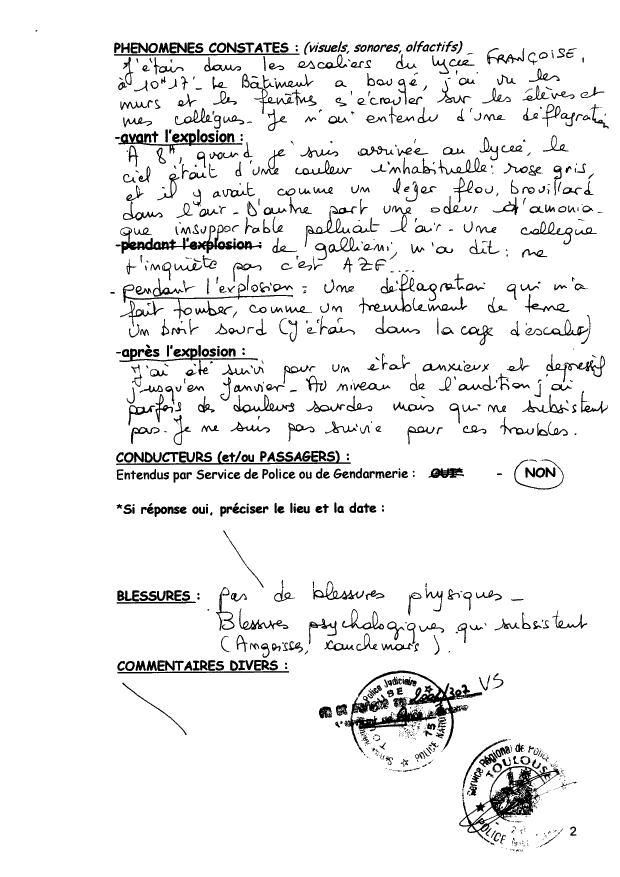 PHENOMENES CONSTATES : (visuels, sonores, olfactifs)
J'étais dans les escaliers du lycée FRANÇOISE,
à 10H17'- Le Bâtiment a bougé, j'ai vu les
murs et les fenêtres s'écrouler sur les élèves et
mes collègues - Je n'ai entendu d'une déflagration
-avant l'explosion :
A 8H, quand je suis arrivée au lycée, le
ciel était d'une couleur inhabituelle : rose gris,
et il y avait comme un léger flou, brouillard
dans l'air - D'autre part une odeur d'amonia-
que insupportable polluait l'air - Une collègue
-pendant l'explosion : de galliéni, m'a dit : ne
t'inquiète pas c'est AZF....
- pendant l'explosion : Une déflagration qui m'a
fait tomber, comme un tremblement de terre
Un bruit sourd (J'étais dans la cage d'escalier)
-après l'explosion :
J'ai été suivi pour un état anxieux et depressif
jusqu'en Janvier - Au niveau de l'audition j'ai
parfois des douleurs sourdes mais qui ne subsistent
pas. Je ne suis pas suivie pour ces troubles.
CONDUCTEURS (et/ou PASSAGERS) :
Entendus par Service de Police ou de Gendarmerie : OUI* - NON
*Si réponse oui, préciser le lieu et la date :
BLESSURES : Pas de blessures physiques -
Blessures psychologiques qui subsistent
(Angoisse, cauchemars).
COMMENTAIRES DIVERS :
Police Judiciaire
TOULOUSE
2001/307 VS
POLICE NATIO
Service Régional de Police
TOULOUSE
POLICE
2